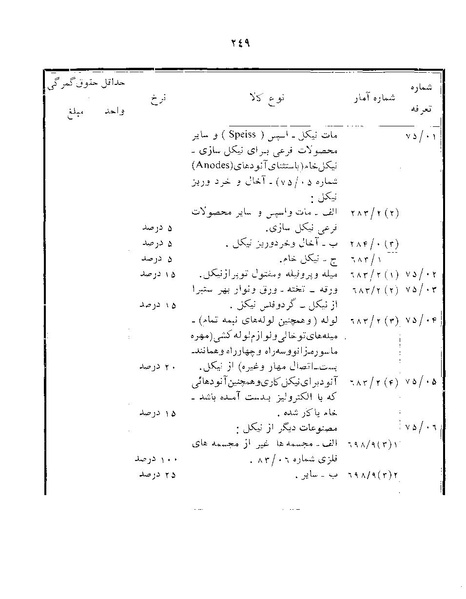 ۲۴۹
شماره تعرفه شماره آمار نوع کالا نرخ حداقل حقوق گمرکی واحد مبلغ
۷۵/۰۱ مات نیکل - اسپس ( Speiss ) و سایر
محصولات فرعی برای نیکل سازی -
نیکل خام (باستثنای آنودهای (Anodes)
شماره ۷۵/۰۵) - آخال و خرد وریز
نیکل :
۲۸۳/۲ (۲) الف - مات واسپس و سایر محصولات
فرعی نیکل سازی. ۵ درصد
۲۸۴/۰ (۳) ب - آخال وخردوریز نیکل . ۵ درصد
۶۸۳/۱ ج - نیکل خام. ۵ درصد
۷۵/۰۲ ۶۸۳/۲ (۱) میله وپروفیله ومفتول توپرازنیکل. ۱۵ درصد
۷۵/۰۳ ۶۸۳/۲ (۲) ورقه - تخته - ورق ونوار بهر ستبرا
از نیکل - گردوفلس نیکل . ۱۵ درصد
۷۵/۰۴ ۶۸۳/۲ (۳) لوله (وهمچنین لوله‌های نیمه تمام) -
میله‌های توخالی ولوازم لوله کشی (مهره
ماسوره-زانو-سه‌راه وچهارراه وهمانند-
بست-اتصال مهار وغیره) از نیکل. ۲۰ درصد
۷۵/۰۵ ۶۸۳/۲ (۴) آنود برای نیکل کاری وهمچنین آنودهائی
که با الکترولیز بدست آمده باشد -
خام یا کار شده . ۱۵ درصد
۷۵/۰۶ مصنوعات دیگر از نیکل :
۶۹۸/۹(۳)۱ الف - مجسمه ها غیر از مجسمه های
فلزی شماره ۸۳/۰۶ . ۱۰۰ درصد
۶۹۸/۹(۳)۲ ب - سایر . ۲۵ درصد